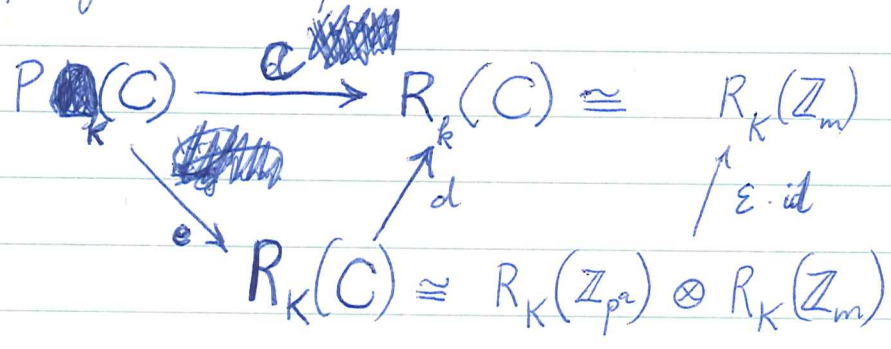 P_k(C) c R_k(C) ≅ R_K(ℤ_m)
e d ε·id
R_K(C) ≅ R_K(ℤ_{p^a}) ⊗ R_K(ℤ_m)